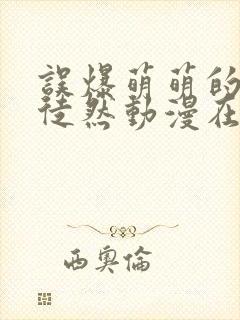 誤爆萌萌的
徒然動漫在
西奧倫